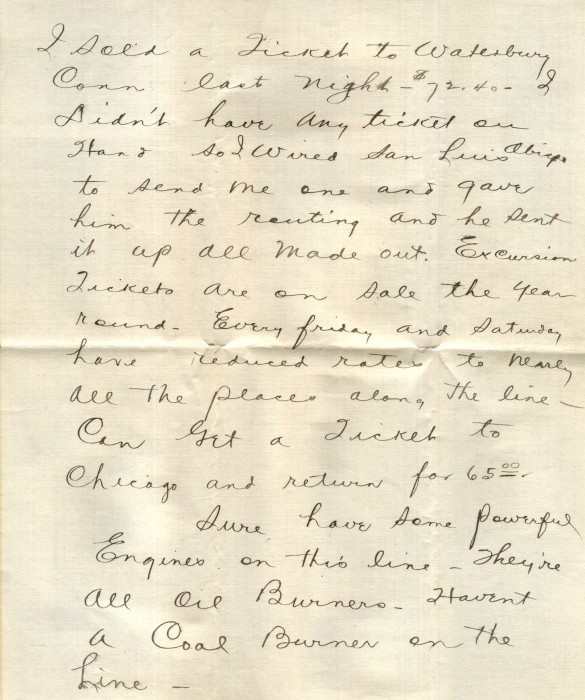 I Sold a Ticket to Waterbury
Conn last night - $72.40 - I
Didn't have any ticket on
Hand so I Wired San Luis Obispo
to send me one and gave
him the routing and he sent
it up all made out. Excursion
Tickets are on sale the year
round - Every friday and Saturday
have reduced rates to nearly
all the places along the line -
Can Get a Ticket to
Chicago and return for 65.00.
Sure have some powerful
Engines on this line - They're
all Oil Burners - Havent
a Coal Burner on the
Line -